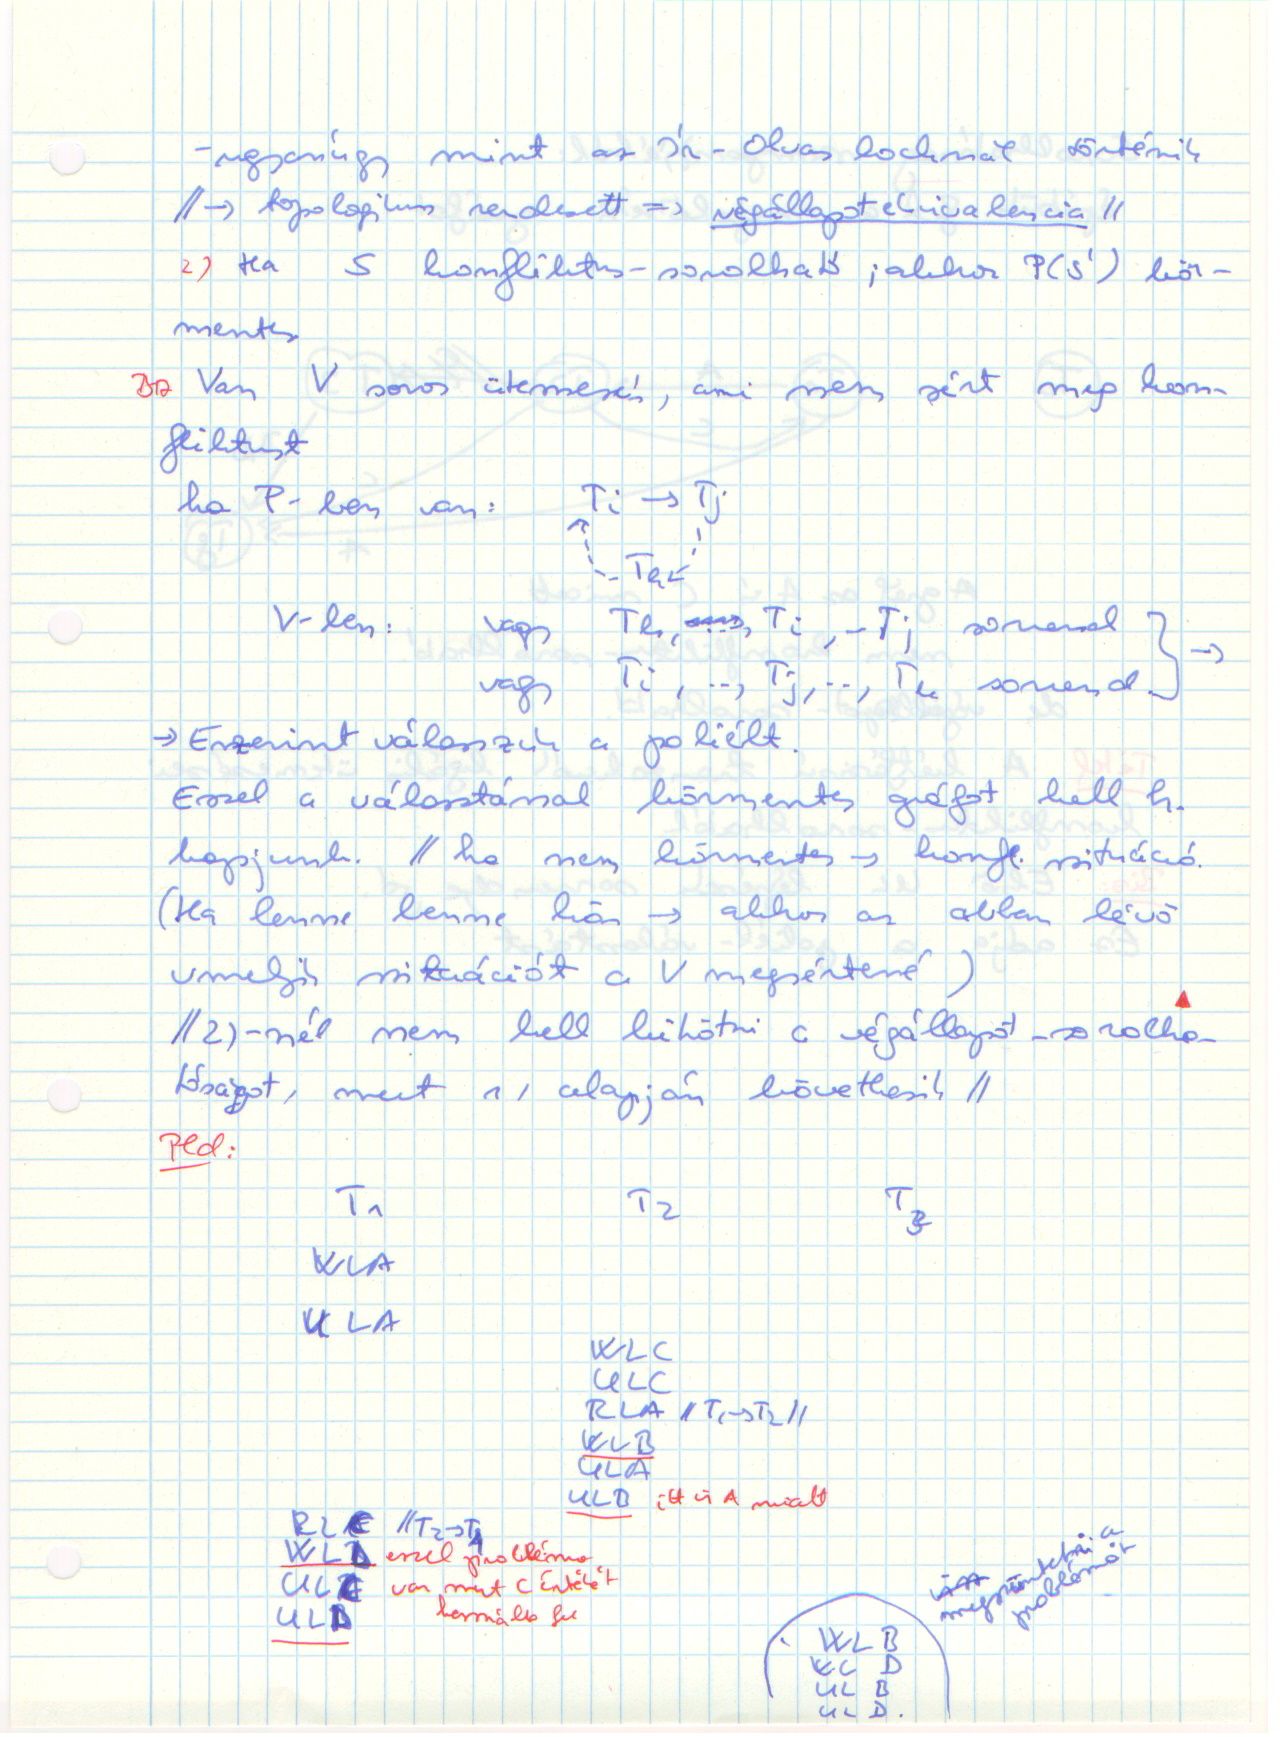 - ugyanúgy mint az Ír-Olvas locknál történik
// → topologikus rendezett => végállapot ekvivalencia //
2) Ha S konfliktus-sorolható, akkor P(S) kör-
mentes
Biz Van V soros ütemezés, ami nem sért meg kon-
fliktust
ha P-ben van: Ti → Tj
Tk
V-ben: vagy Tk, ..., Ti, .. Tj sorrend
vagy Ti, .., Tj, .., Tk sorrend. } →
→ Eszerint válasszuk a poliélt.
Ezzel a választással körmentes gráfot kell k.
kapjunk. // ha nem körmentes → konf. szituáció.
(Ha lenne benne kör → akkor az abban lévő
vmelyik szituációt a V megsértené)
// 2)-nél nem kell kikötni a végállapot-sorolha-
tóságot, mert 1, alapján következik //
Pld:
T1 T2 T3
WLA
ULA
WLC
ULC
RLA // T1→T2 //
WLB
ULA
ULB itt is A miatt
RLC // T2→T1
WLD ezzel probléma
ULC van mert C értékét
ULD használta fel
megszüntetni a
problémát
WLB
WL D
UL B
UL D.